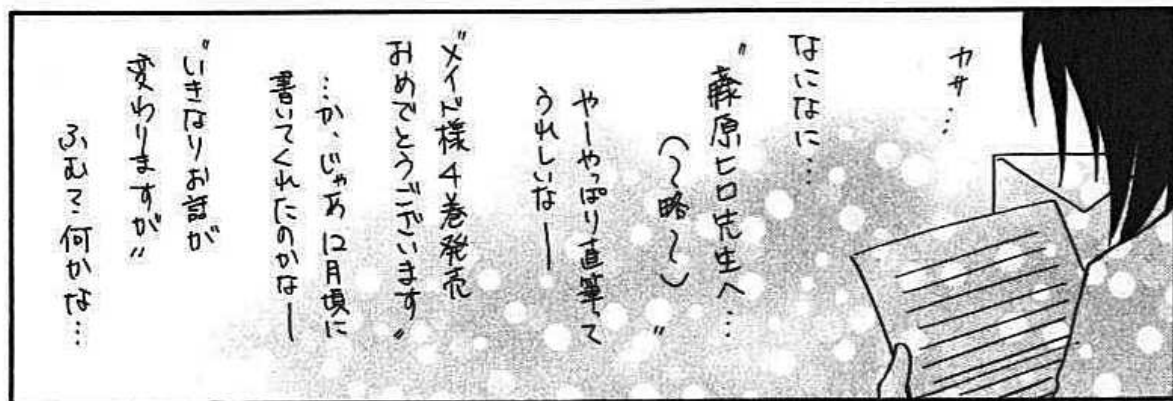 カサ…
なになに…
“藤原ヒロ先生へ…
(〜略〜)”
やーやっぱり直筆って
うれしいなー
“メイド様4巻発売
おめでとうございます”
…か、じゃあ12月頃に
書いてくれたのかなー
“いきなりお話が
変わりますが”
ふむふむ何かな…